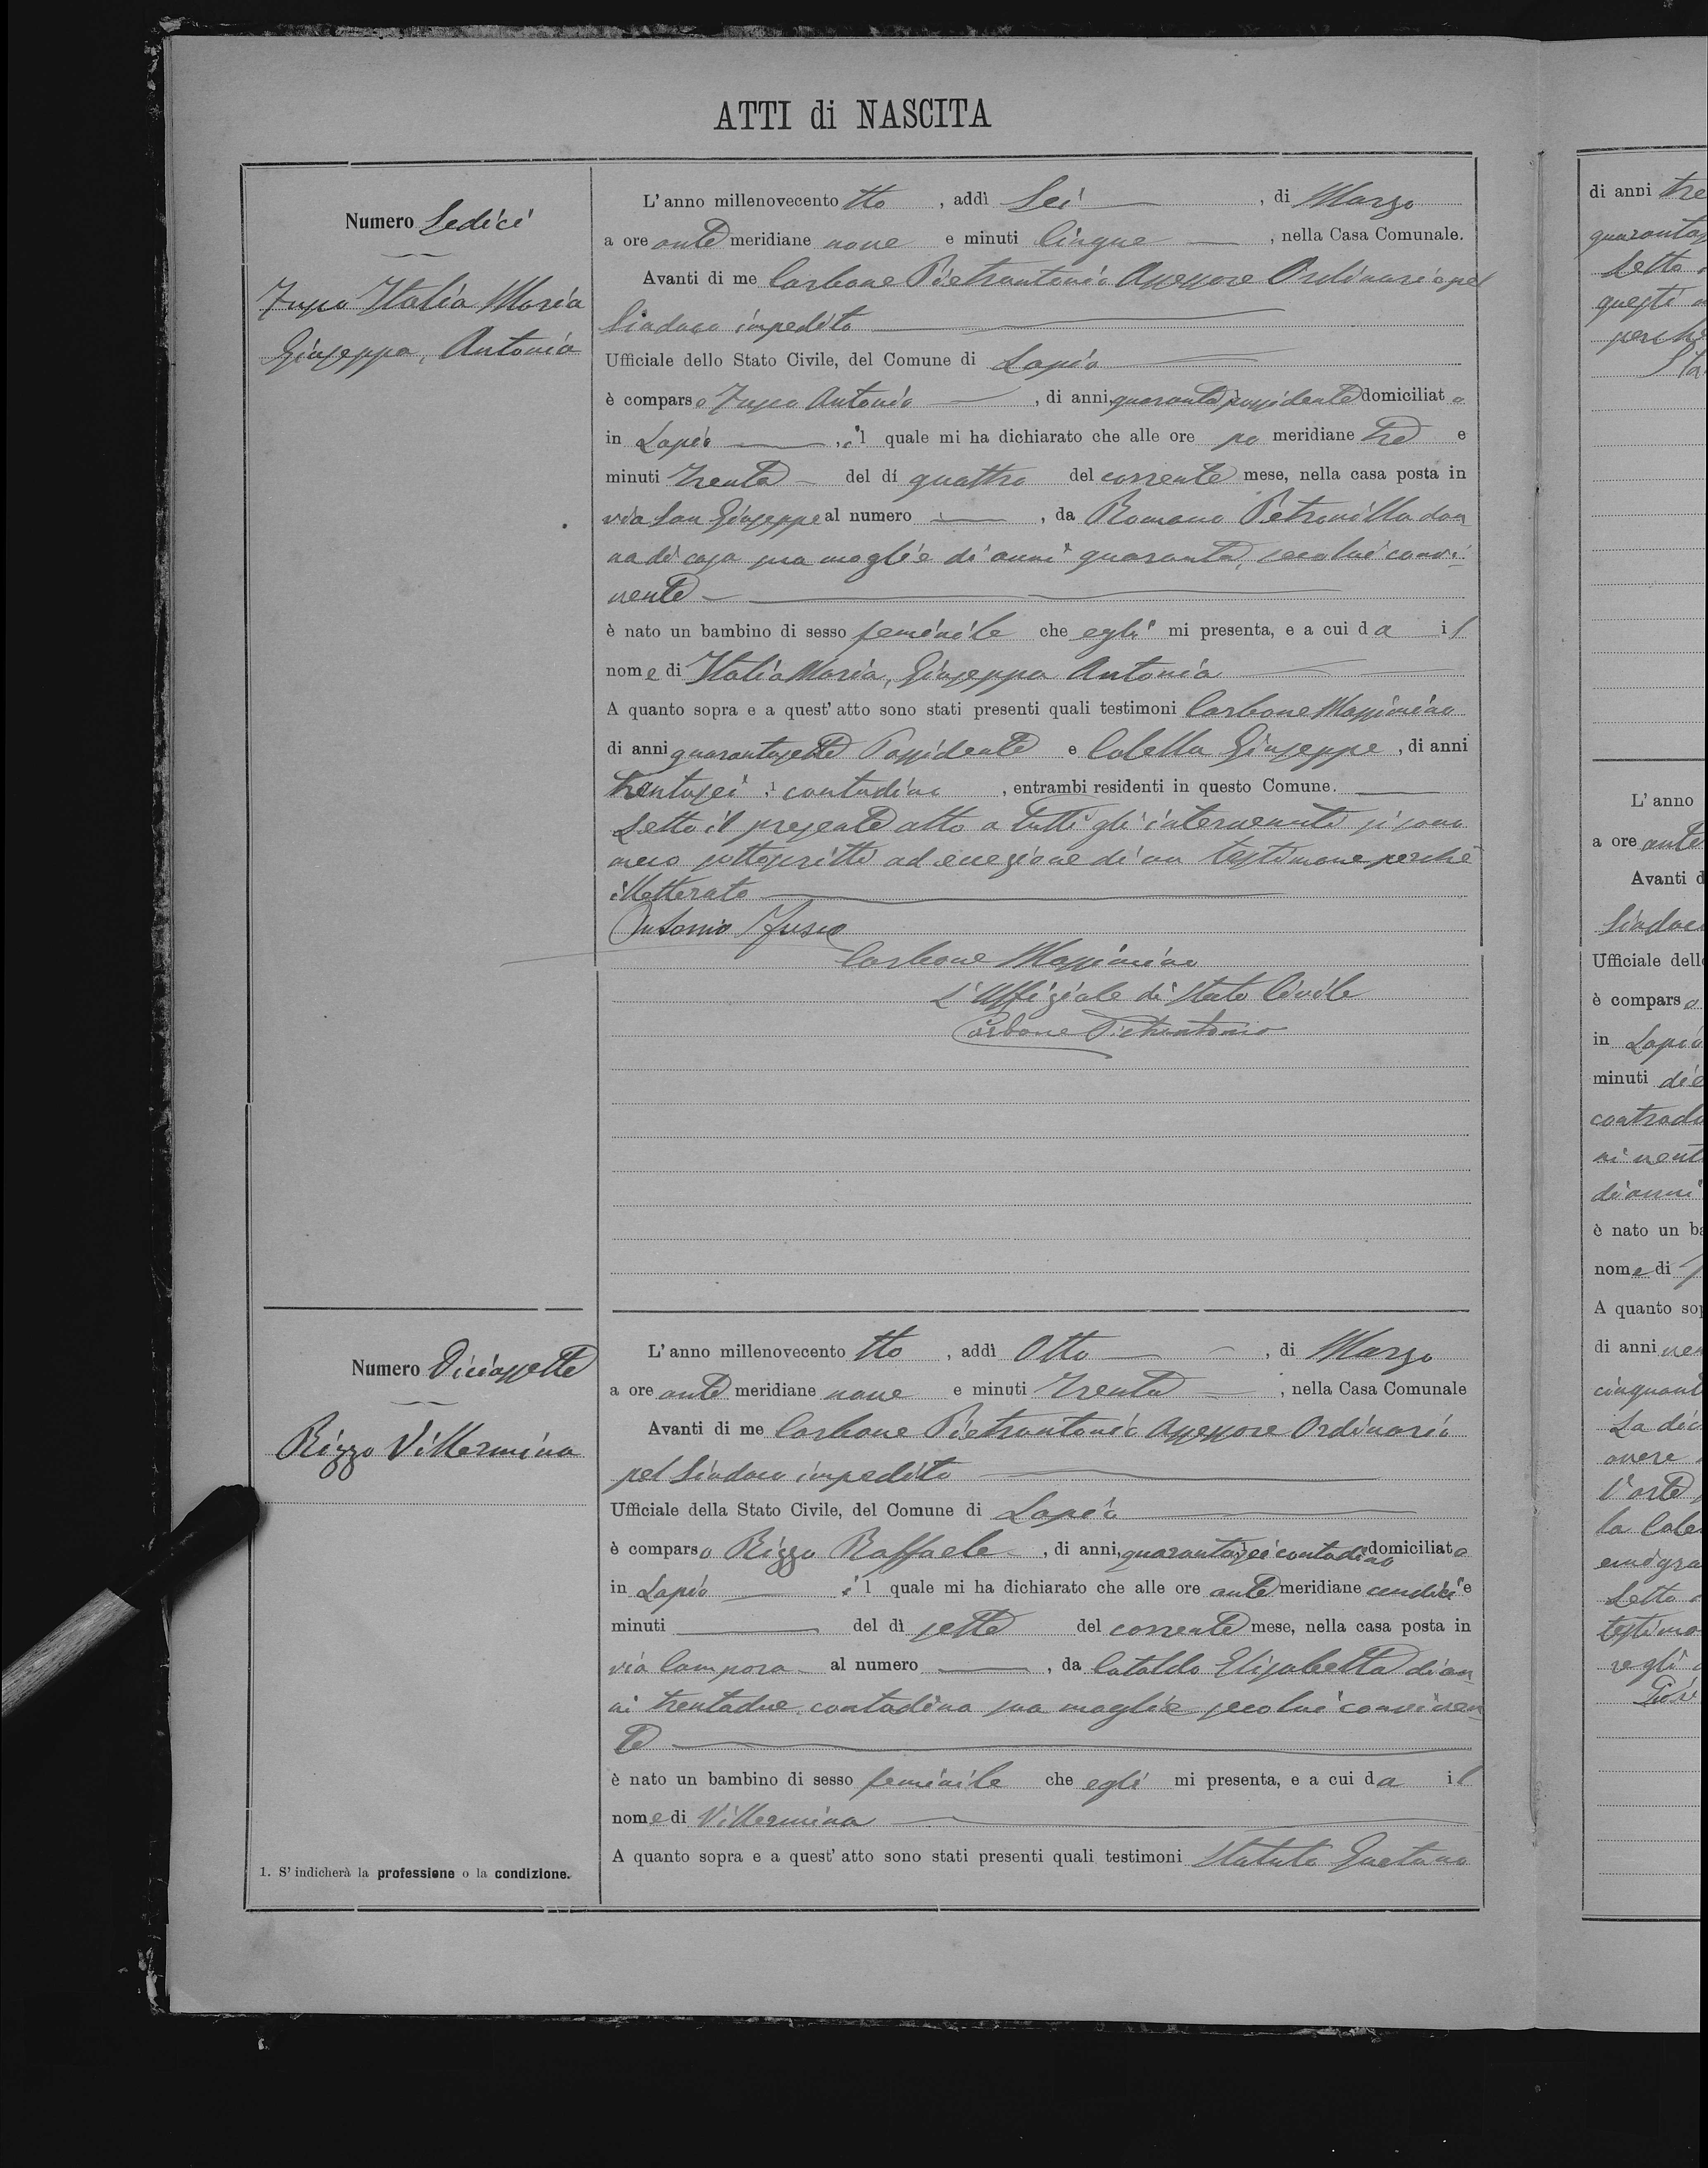 ATTI di NASCITA
Numero Sedici
Fusco Italia Maria
Giuseppa, Antonia
L'anno millenovecento tto, addì Sei, di Marzo
a ore ante meridiane nove e minuti Cinque, nella Casa Comunale.
Avanti di me Carbone Pietrantonio Assessore Ordinario pel
Sindaco impedito
Ufficiale dello Stato Civile, del Comune di Lapio
è comparso Fusco Antonio, di anni, quaranta possidente domiciliato
in Lapio, il quale mi ha dichiarato che alle ore po meridiane tre e
minuti trenta del dí quattro del corrente mese, nella casa posta in
via San Giuseppe al numero, da Romano Petronilla don
na di casa sua moglie di anni quaranta, seco lui convi
vente
è nato un bambino di sesso feminile che egli mi presenta, e a cui da il
nome di Italia Maria, Giuseppa Antonia
A quanto sopra e a quest' atto sono stati presenti quali testimoni Carbone Massimino
di anni quarantasette Possidente e Colella Giuseppe, di anni
trentasei, contadino, entrambi residenti in questo Comune.
Letto il presente atto a tutti gli intervenuti si sono
meco sottoscritti ad eccezione di un testimone perchè
illetterato
Antonio Fusco
Carbone Massimino
L'Uffiziale di Stato Civile
Carbone Pietrantonio
Numero Diciassette
Rizzo Villermina
L'anno millenovecento tto, addì Otto, di Marzo
a ore ante meridiane nove e minuti trenta, nella Casa Comunale
Avanti di me Carbone Pietrantonio Assessore Ordinario
pel Sindaco impedito
Ufficiale della Stato Civile, del Comune di Lapio
è comparso Rizzo Raffaele, di anni, quarantasei contadino domiciliato
in Lapio il quale mi ha dichiarato che alle ore ante meridiane undici e
minuti del dì sette del corrente mese, nella casa posta in
via Campora al numero, da Cataldo Elisabetta di an
ni trentadue contadina sua moglie seco lui conviven
te
è nato un bambino di sesso feminile che egli mi presenta, e a cui da il
nome di Villermina
A quanto sopra e a quest' atto sono stati presenti quali testimoni Statuto Gaetano
1. S' indicherà la professione o la condizione.
di anni tre
Letto
questi
perchè
L'anno
a ore ante
Avanti d
Sindaco
Ufficiale dell
è comparso
in Lapio
minuti die
contrada
di anni
è nato un ba
nome di
A quanto sop
di anni
cinquant
La dic
avere
Letto
testimo